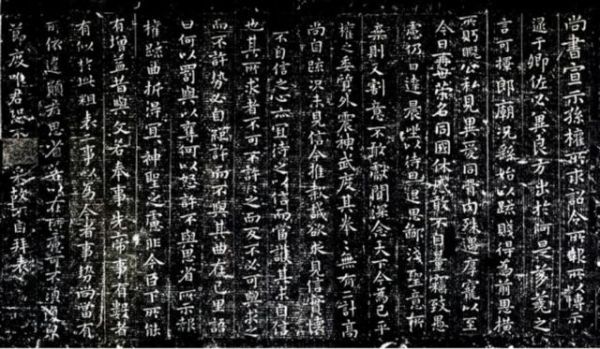 尚書宣示孫權所求詔令所報所以博示
逮于卿佐必冀良方出於阿是芻蕘之
言可擇郎廟況繇始以疏賤得為前恩橫
所盱睨公私見異愛同骨肉殊遇厚寵以至
今日再世榮名同國休慼敢不自量竊致愚
慮仍日達晨坐以待旦退思鄙淺聖意所
棄則又割意不敢獻聞深念天下今為已平
權之委質外震神武度其拳拳無有二計高
尚自疏況未見信今推款誠欲求見信實懷
不自信之心亦宜待之以信而當護其未自信
也其所求者不可不許許之而反不必可與求之
而不許勢必自絕許而不與其曲在己里語
曰何以罰與以奪何以怒許不與思省所示報
權疏曲折得宜宜神聖之慮非今臣下所能
有增益昔與文若奉事先帝事有數者
有似於此粗表二事以為今者事勢尚當有
所依違願君思省若以在所慮可不須復貌
節度唯君恐不可采故不自拜表